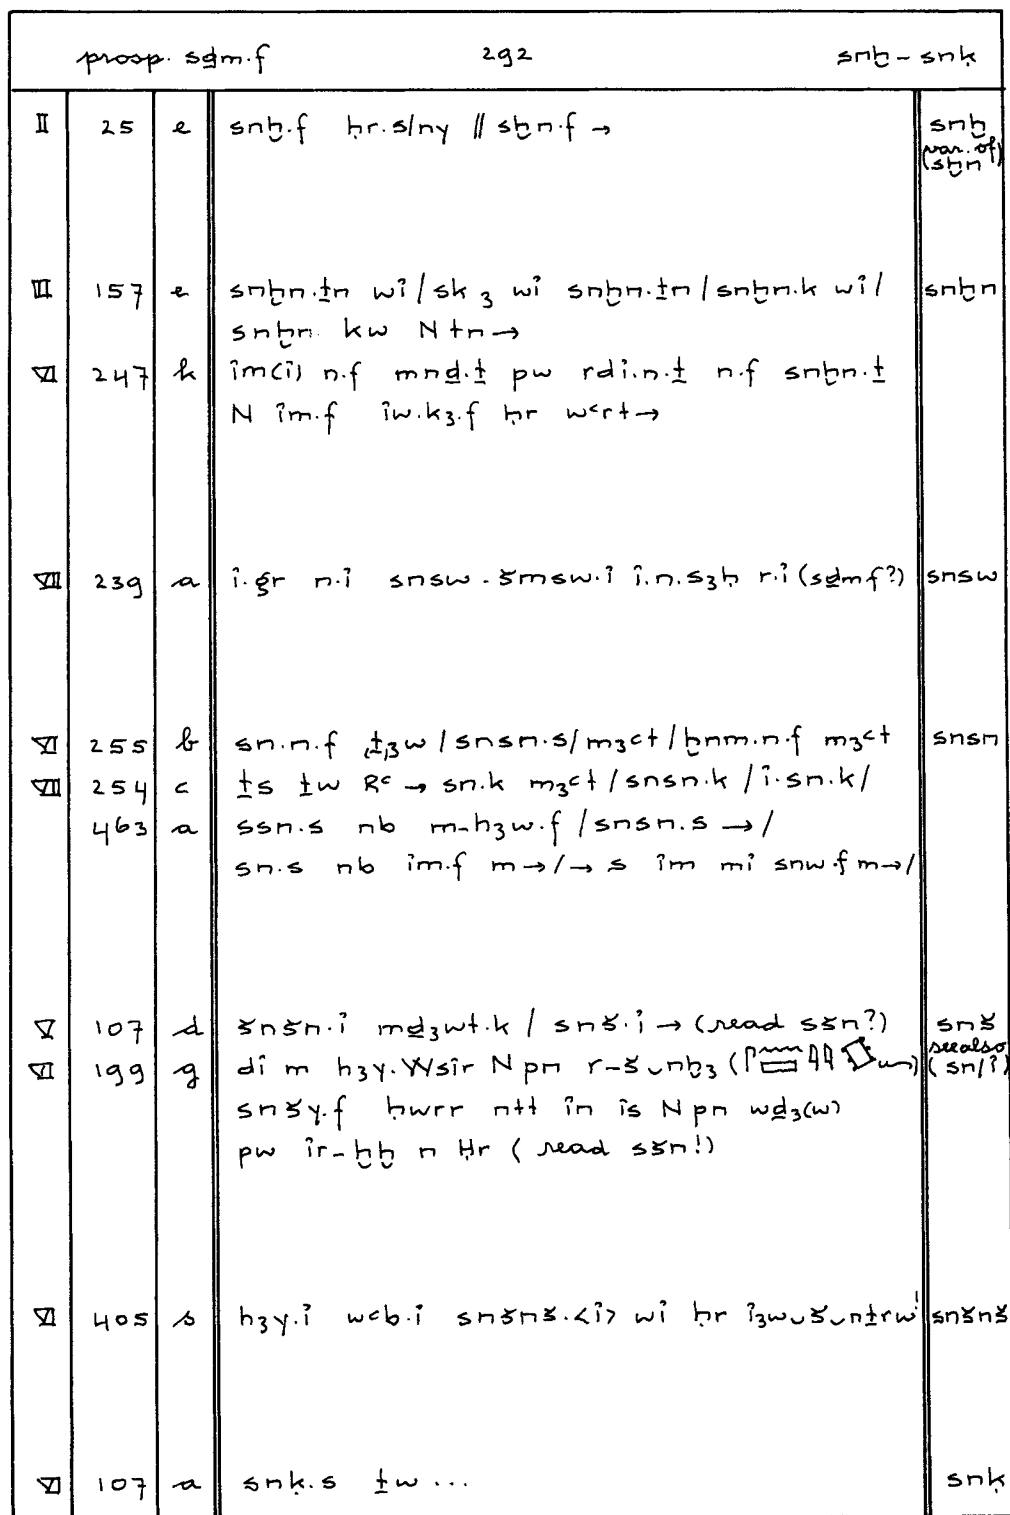 prosp. sḏm.f 292 snẖ - snḳ
II 25 e snẖ.f ḥr.s/ny // sẖn.f → snẖ
(var. of
sẖn)
III 157 e snẖn.ṯn wî / sk ꜣ wî snẖn.ṯn / snẖn.k wî / snẖn
snẖn. kw N tn →
VI 247 k îm(î) n.f mnḏ.ṯ pw rdî.n.ṯ n.f snẖn.ṯ
N îm.f îw.kꜣ.f ḥr wꜥrt →
VII 239 a î.gr n.î snsw.šmsw.î î.n.sꜣḥ r.î (sḏmf?) snsw
VI 255 b sn.n.f ṯꜣw / snsn.s / mꜣꜥt / ẖnm.n.f mꜣꜥt snsn
VII 254 c ṯs ṯw Rꜥ → sn.k mꜣꜥt / snsn.k / î.sn.k /
463 a ssn.s nb m-hꜣw.f / snsn.s → /
sn.s nb îm.f m → / → s îm mî snw.f m → /
V 107 d šnšn.î mḏꜣwt.k / snš.î → (read sšn?) snš
see also
VI 199 g dî m hꜣy.Wsîr N pn r-š‿nẖꜣ ( ) (sn/î)
snšy.f ḥwrr ntt în îs N pn wḏꜣ(w)
pw îr-ẖẖ n Ḥr (read sšn!)
VI 405 s hꜣy.î wꜥb.î snšnš.<î> wî ḥr îꜣw‿š‿nṯrw! snšnš
VI 107 a snḳ.s ṯw ... snḳ